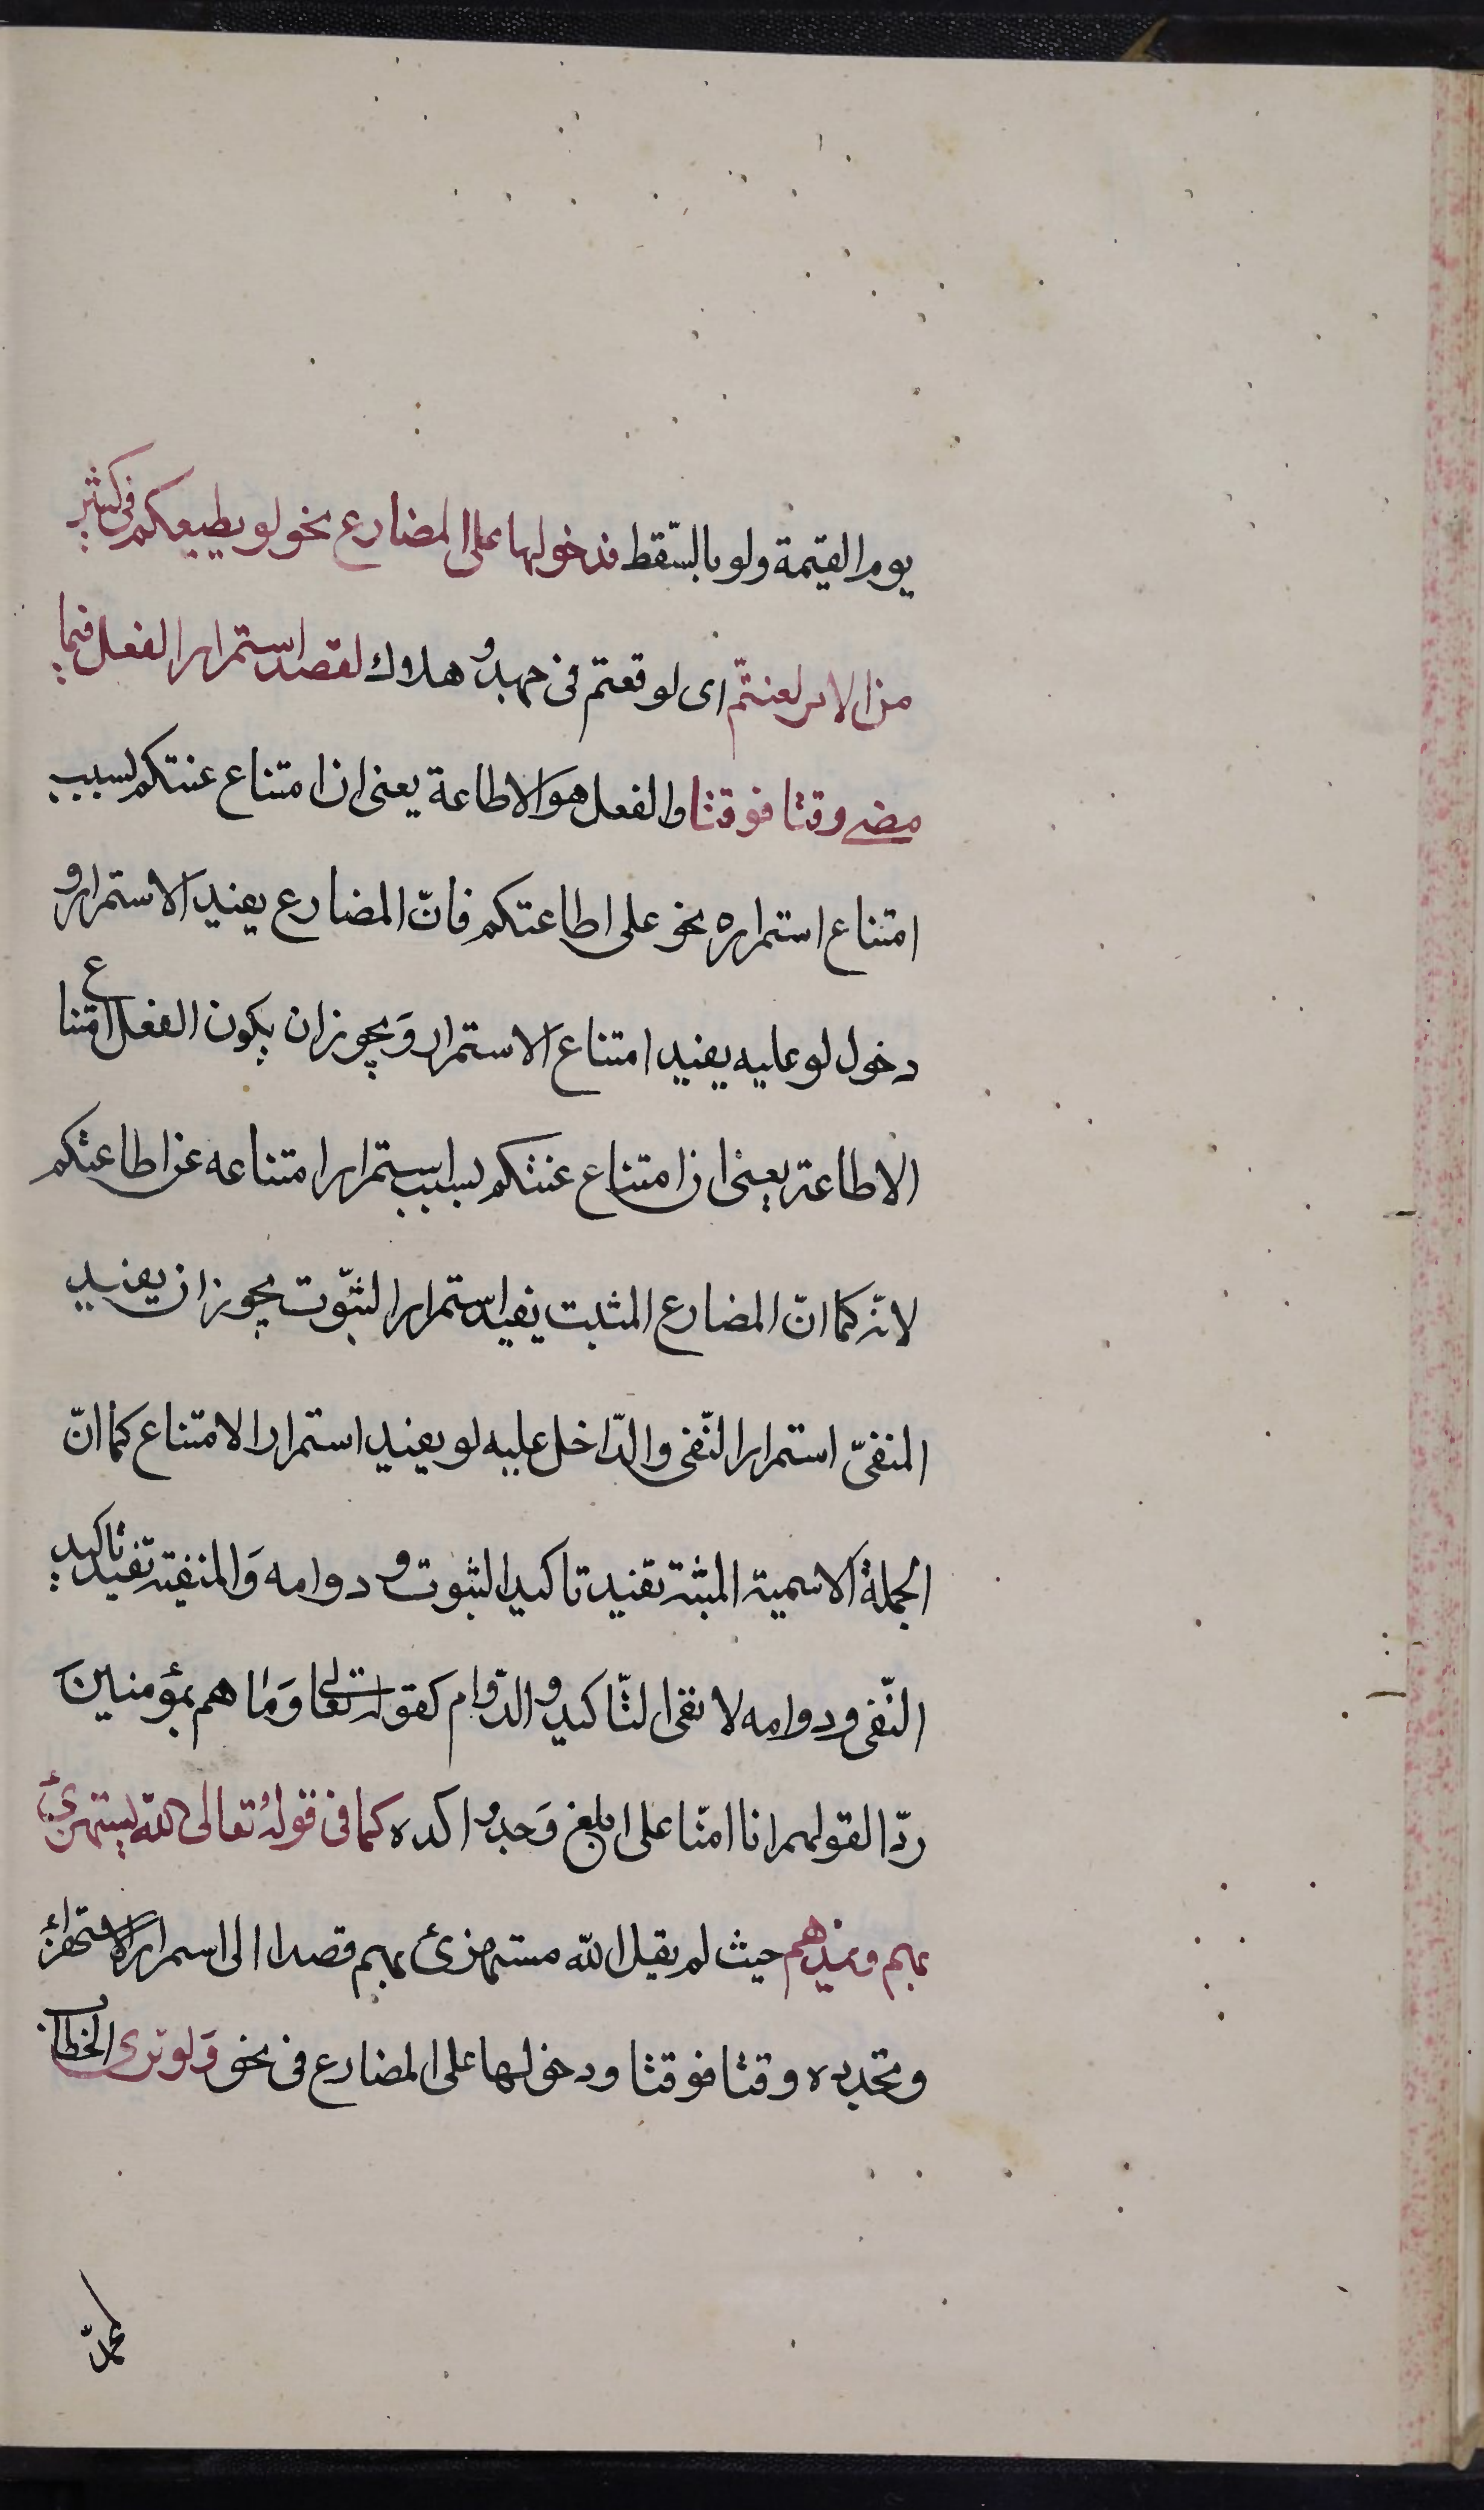 يوم القيمة ولو بالسّقط فدخولها على المضارع نحو لو يطيعكم فى كثير
من الامر لعنتّم اى لوقعتم فى جهد و هلاك لقصد استمرار الفعل فيما
مضى وقتا فوقتا والفعل هو الاطاعة يعنى ان امتناع عنتكم بسبب
امتناع استمراره نحو على اطاعتكم فانّ المضارع يفيد الاستمرار و
دخول لو عليه يفيد امتناع الاستمرار وَيجوز ان يكون الفعل امتناع
الاطاعة يعنى ان امتناع عنتكم بسبب استمرار امتناعه عن اطاعتكم
لانه كما انّ المضارع المثبت يفيد استمرار الثبّوت يجوز ان يفيد
المنفىّ استمرار النّفى والدّاخل عليه لو يفيد استمرار الامتناع كما انّ
الجملة الاسمية المثبته تفيد تاكيد الثبوت و دوامه وَالمنفيته تفيد تاكيد
النّفى ودوامه لا نفى التّاكيد و الدّوام كقوله تعالى وَمَا هم بمؤمنين
ردّا لقولهم انا امنّا على ابلغ وَجه و اكده كما فى قوله تعالى اللّه يستهزئ
بهم ويمدهم حيث لم يقل اللّه مستهزئ بهم قصدا الى اسمرار الاستهزاء
وتجدده وقتا فوقتا ودخولها على المضارع فى نحو وَلو ترى الخطاب
لمحمّد